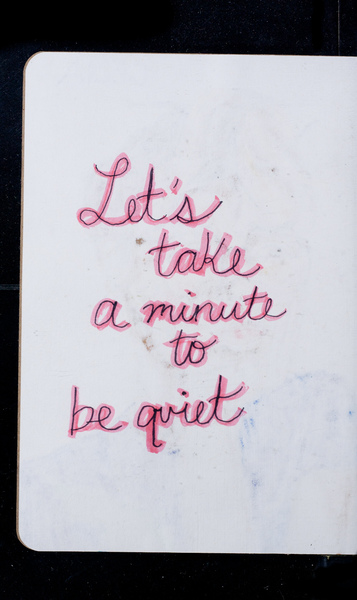 Let's
take
a minute
to
be quiet